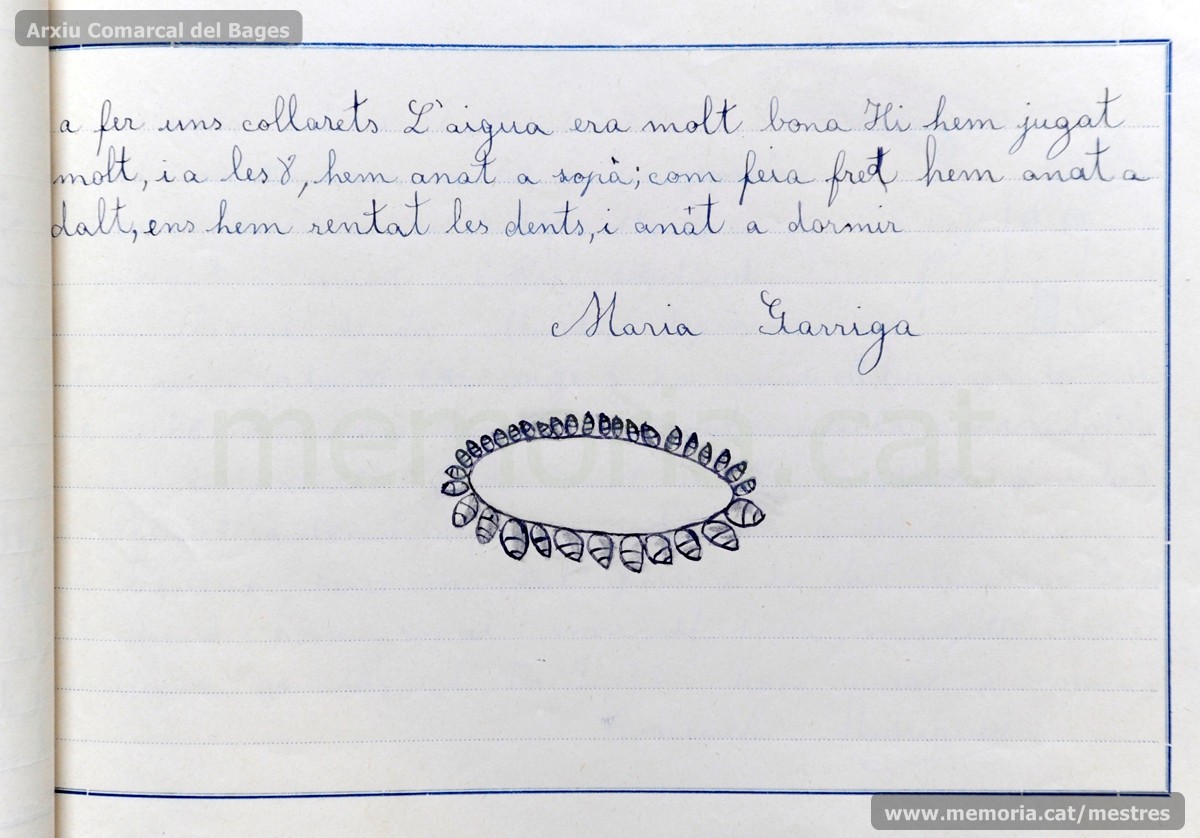 Arxiu Comarcal del Bages
a fer uns collarets L'aigua era molt bona Hi hem jugat
molt, i a les 8, hem anat a sopà; com feia fret hem anat a
dalt, ens hem rentat les dents, i anàt a dormir
Maria Garriga
memoria.cat
www.memoria.cat/mestres